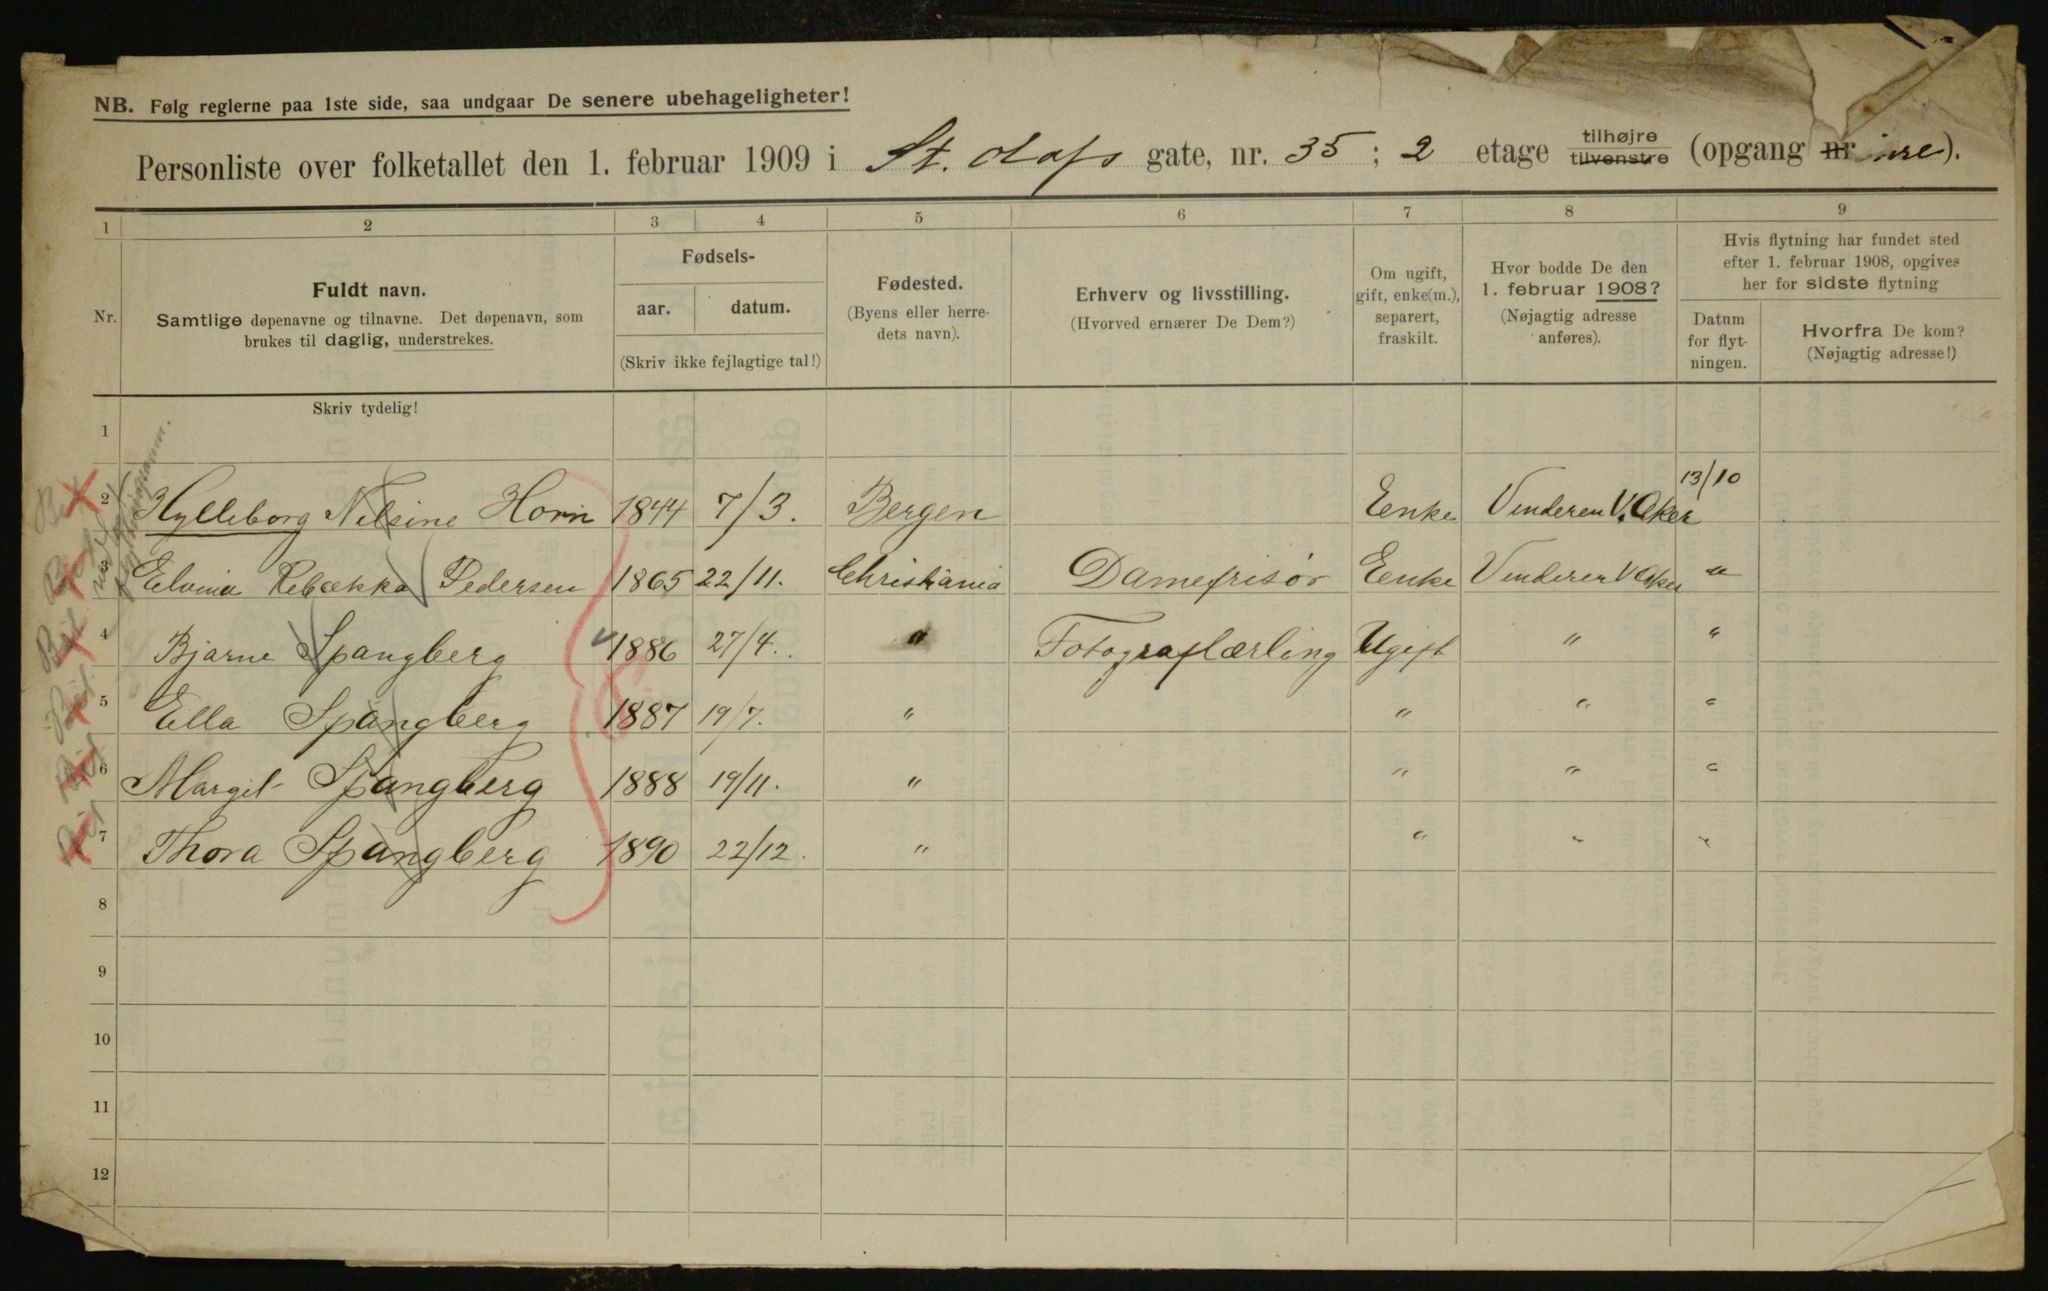 NB. Følg reglerne paa 1ste side, saa undgaar De senere ubehageligheter!
Personliste over folketallet den 1. februar 1909 i St. Olafs gate, nr. 35 ; 2 etage tilhøjre tilvenstre (opgang nr ).
1 2 3 4 5 6 7 8 9
Nr.
Fuldt navn.
Samtlige døpenavne og tilnavne. Det døpenavn, som
brukes til daglig, understrekes.
Fødsels-
aar. datum.
(Skriv ikke fejlagtige tal!)
Fødested.
(Byens eller herre-
dets navn).
Erhverv og livsstilling.
(Hvorved ernærer De Dem?)
Om ugift,
gift, enke(m.),
separert,
fraskilt.
Hvor bodde De den
1. februar 1908?
(Nøjagtig adresse
anføres).
Hvis flytning har fundet sted
efter 1. februar 1908, opgives
her for sidste flytning
Datum
for flyt-
ningen.
Hvorfra De kom?
(Nøjagtig adresse!)
Skriv tydelig!
1
2 Hylleborg Nilsine Horn 1844 7/3. Bergen Eenke Vinderen V. Aker 13/10
3 Elvina Rebækka Pedersen 1865 22/11. Christiania Damefrisör Eenke Vinderen V Aker "
4 Bjarne Spangberg 1886 27/4. " Fotograflærling Ugift " "
5 Ella Spangberg 1887 19/7. " " " "
6 Margit Spangberg 1888 19/11. " " " "
7 Thora Spangberg 1890 22/12. " " " "
8
9
10
11
12